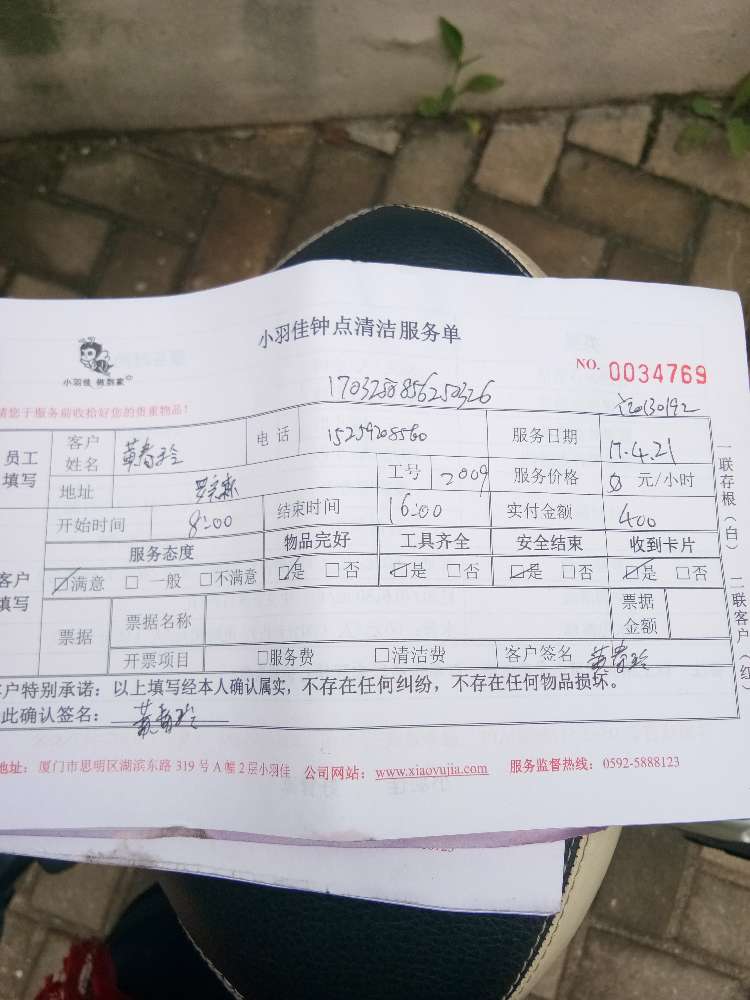 小羽佳钟点清洁服务单
小羽佳 做到家
NO. 0034769
请您于服务前收拾好您的贵重物品!
员工填写 客户姓名 黄春玲 电话 15259208560 服务日期 17.4.21
地址 工号 2009 服务价格 元/小时
开始时间 8:00 结束时间 16:00 实付金额 400
服务态度 物品完好 工具齐全 安全结束 收到卡片
客户填写 ☑满意 □ 一般 □不满意 ☑是 □否 ☑是 □否 ☑是 □否 ☑是 □否
票据 票据名称 票据金额
开票项目 □服务费 □清洁费 客户签名 黄春玲
客户特别承诺:以上填写经本人确认属实,不存在任何纠纷,不存在任何物品损坏。
此确认签名: 黄春玲
一联存根(白) 二联客户(红)
地址:厦门市思明区湖滨东路 319 号 A 幢 2 层小羽佳 公司网站:www.xiaoyujia.com 服务监督热线:0592-5888123